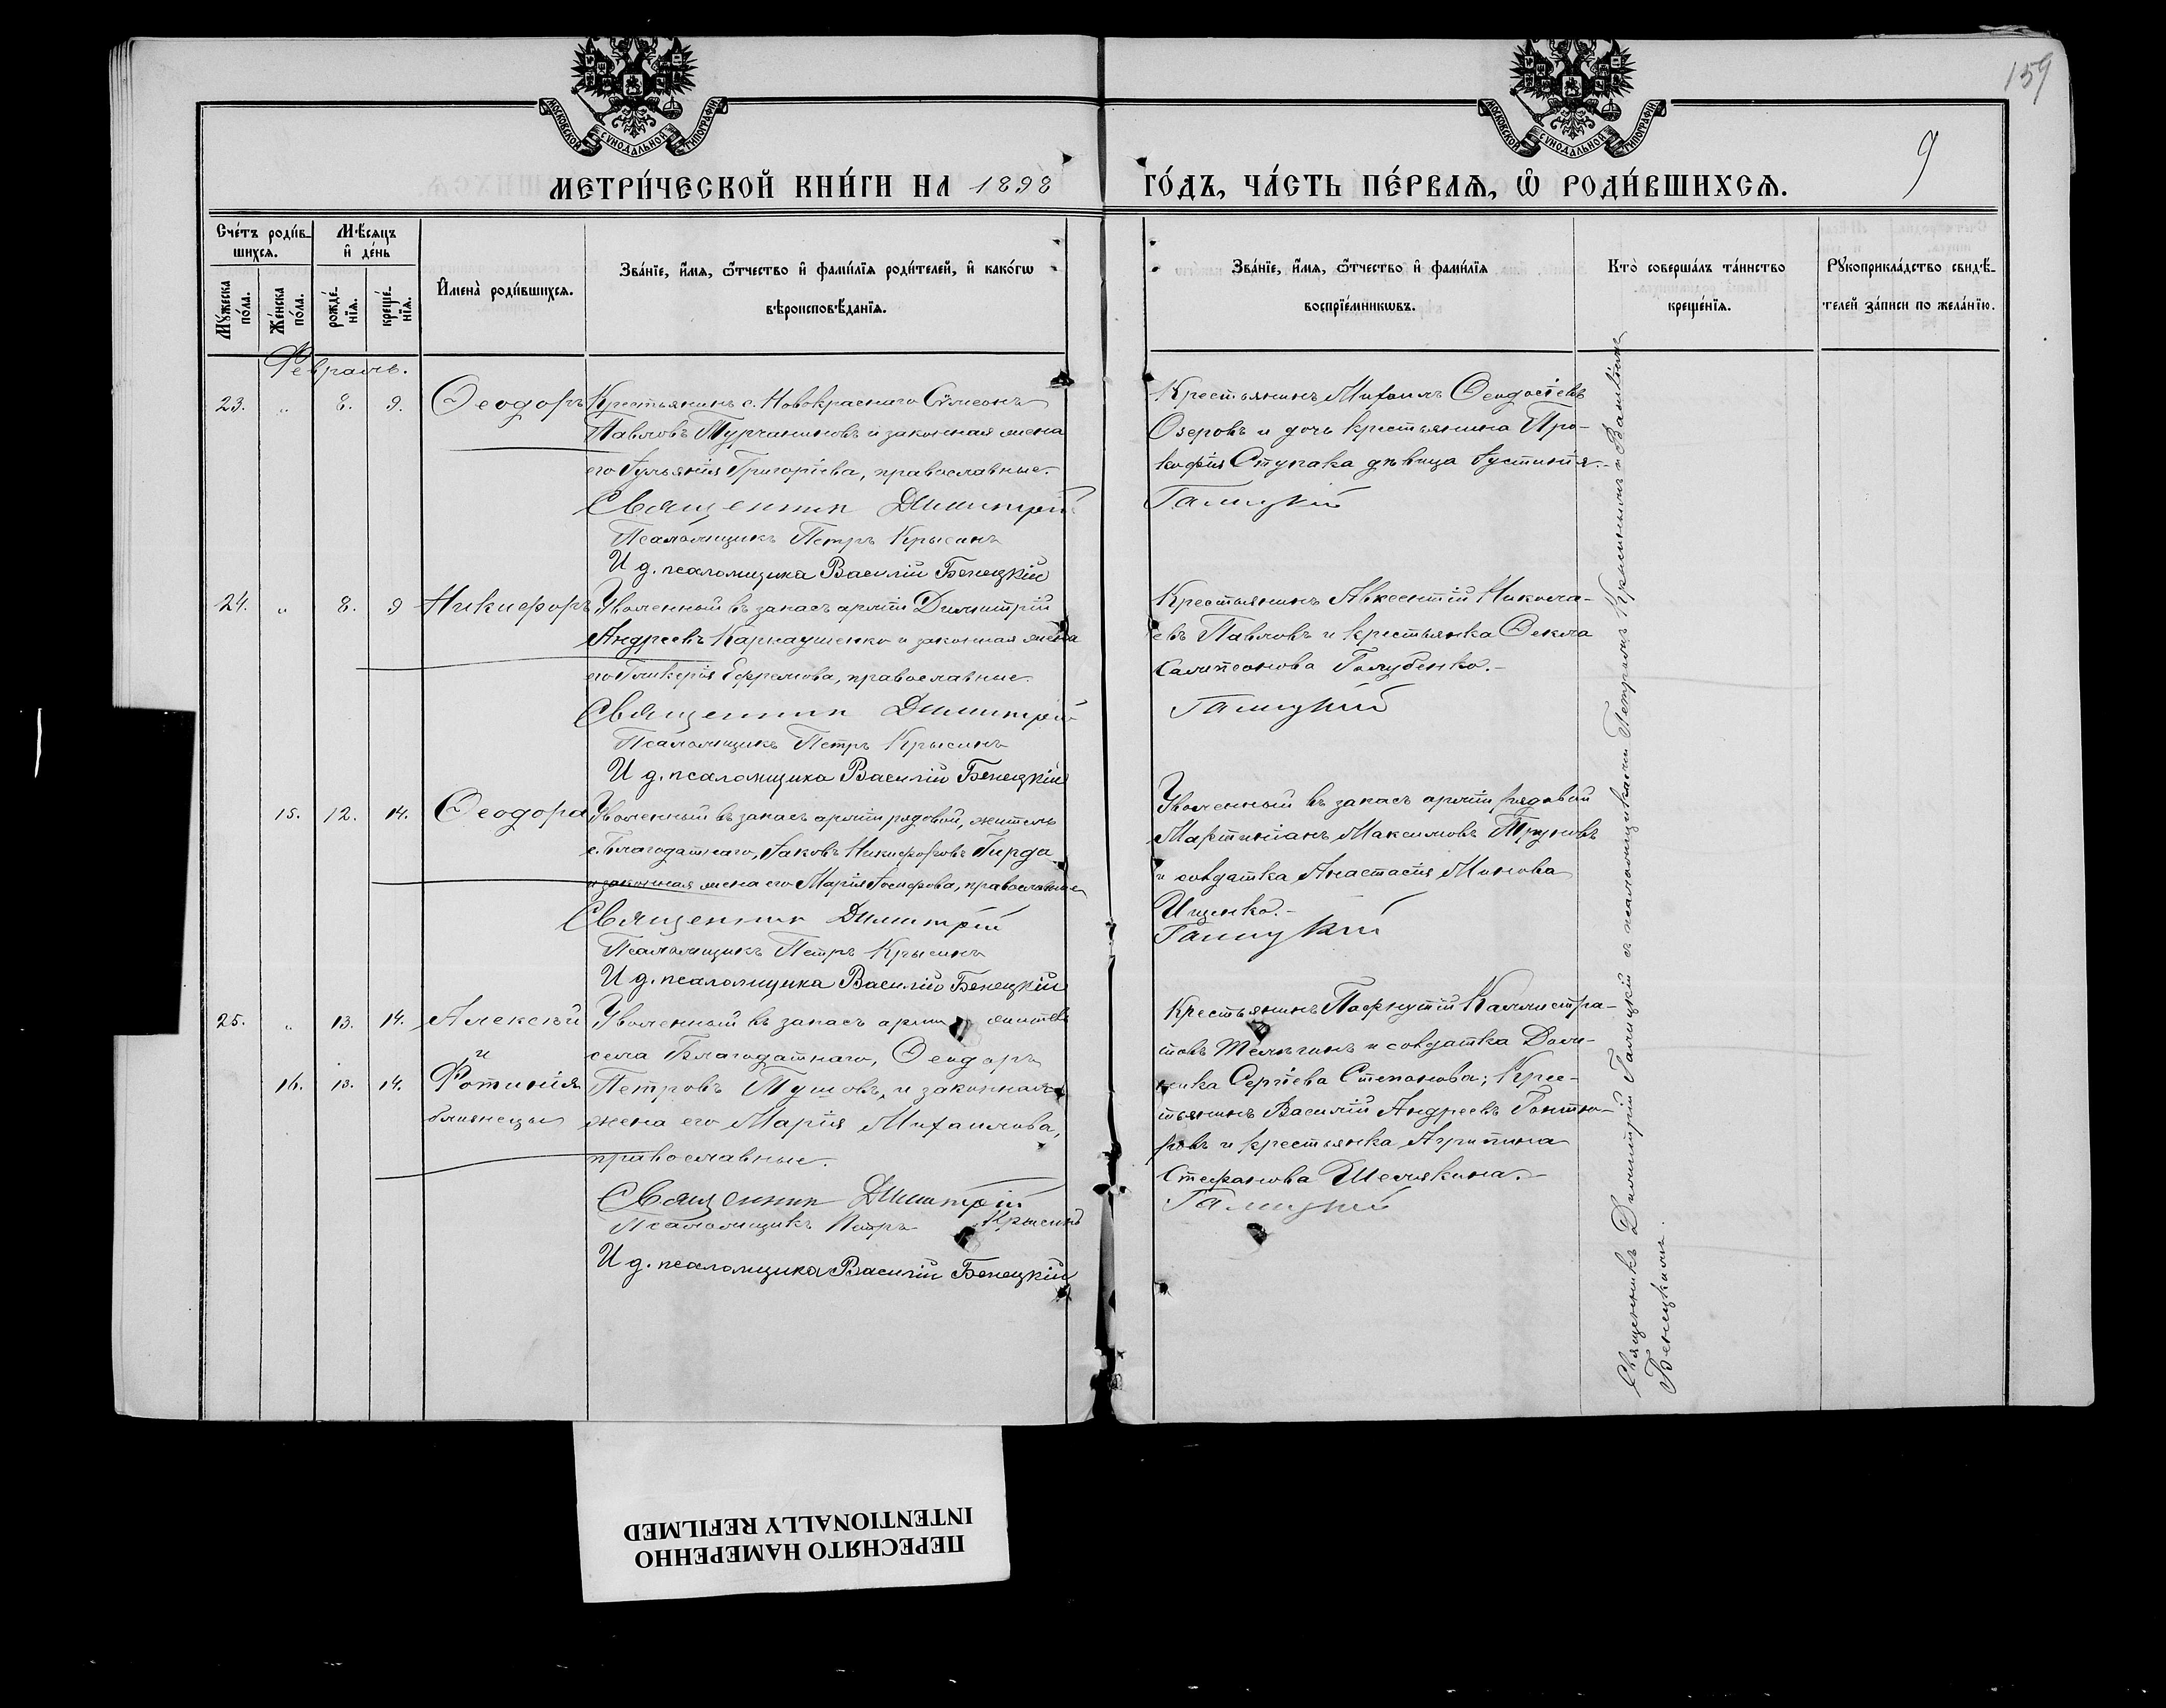 159
9
МОСКОВСКОЙ СУНОДАЛЬНОЙ ТИПОГРАФІИ
МОСКОВСКОЙ СУНОДАЛЬНОЙ ТИПОГРАФІИ
МЕТРИ́ЧЕСКОЙ КНИ́ГИ НА 1898
ГО́ДЪ, ЧА́СТЬ ПЕ́РВАѦ, Ѡ РОДИ́ВШИХСѦ.
Сче́тъ роди́в-
шихсѧ.
Мꙋ́жеска по́ла.
Же́нска по́ла.
Мѣ́сѧцъ
и҆ де́нь
рожде́-
нїѧ.
креще́-
нїѧ.
И҆мена̀ роди́вшихсѧ.
Зва́нїе, и҆́мѧ, ѻ҆́тчество и҆ фами́лїѧ роди́телей, и҆ како́гѡ
вѣроисповѣ́данїѧ.
Зва́нїе, и҆́мѧ, ѻ҆́тчество и҆ фами́лїѧ
воспрїе́мникѡвъ.
Кто̀ соверша́лъ та́инство
креще́нїѧ.
Рꙋкоприкла́дство свидѣ́-
телей за́писи по жела́нїю.
Февраль.
23. „ 8. 9. Ѳеодоръ
Крестьянинъ с. Новокраснаго Сѵмеонъ
Павловъ Турчаниновъ и законная жена
его Іульянія Григоріева, православные.
Священник Димитрій
Псаломщикъ Петръ Крысинъ
И д. псаломщика Василій Бенецкій
Крестьянинъ Михаилъ Ѳеодосіевъ
Озеровъ и дочь крестьянина Про-
кофія Ступака дѣвица Іустинія.
Галицкій
24. „ 8. 9 Никифоръ
Уволенный въ запасъ арміи Димитрій
Андреевъ Карнаушенко и законная жена
его Гликерія Ефремова, православные.
Священник Димитрій
Псаломщикъ Петръ Крысинъ
И д. псаломщика Василій Бенецкій
Крестьянинъ Авксентій Никола-
евъ Павловъ и крестьянка Ѳекла
Сампсонова Голубенко.-
Галицкій
15. 12. 14. Ѳеодора
Уволенный въ запасъ арміи рядовой, житель
с. Благодатнаго, Іаковъ Никифоровъ Гирда
и законная жена его Марія Іосифова, православные
Священник Димитрій
Псаломщикъ Петръ Крысинъ
И д. псаломщика Василій Бенецкій
Уволенный въ запасъ арміи рядовой
Мартиніанъ Максимовъ Труновъ
и солдатка Анастасія Минова
Ищенко.-
Галицкій
25. „ 13. 14. Алексѣй
и
16. 13. 14. Фотинія
близнецы
Уволенный въ запасъ арміи житель
села Благодатнаго, Ѳеодоръ
Петровъ Тушовъ, и законная
жена его Марія Михаилова,
православные.
Священник Димитрій
Псаломщикъ Петръ Крысинъ
И д. псаломщика Василій Бенецкій
Крестьянинъ Пафнутій Каллистра-
товъ и солдатка Дом-
ника Сергіева Степанова; Крес-
тьянинъ Василій Андреевъ
и крестьянка Агрипина
Стефанова Шелякина.-
Галицкій
Священникъ Димитрій Галицкій съ псаломщиками Петромъ Крысинымъ и Василіемъ
Бенецкимъ.
ПЕРЕСНЯТО НАМЕРЕННО
INTENTIONALLY REFILMED